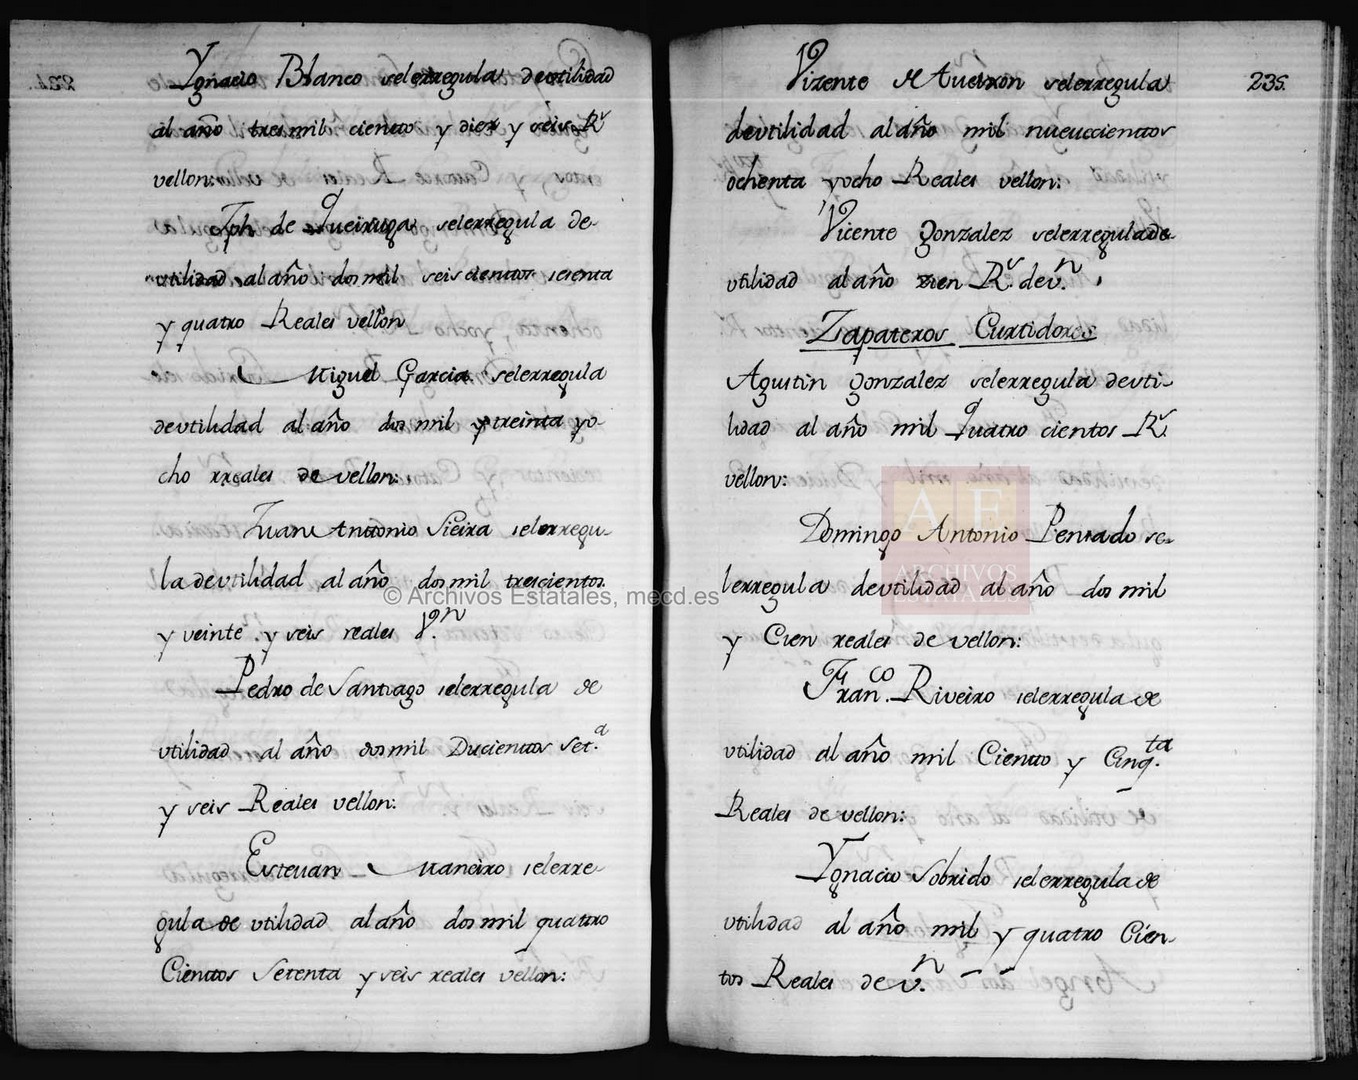 Ygnacio Blanco selerregula deutilidad
al año tres mil ciento y diez y seis Rˢ
vellon:
Jph de Queiruga selerregula de
utilidad al año dos mil seiscientos sesenta
y quatro Reales vellon
Miguel Garcia selerregula
deutilidad al año dos mil y treinta yo-
cho rreales de vellon:
Juan Antonio Sieira selerregu-
la deutilidad al año dos mil trescientos
y veinte y seis reales vⁿ.
Pedro de Santiago selerregula de
utilidad al año dosmil Ducientos Set.ᵃ
y seis Reales vellon:
Estevan Maneiro selerre-
gula de utilidad al año dos mil quatro
Cientos Setenta y seis reales vellon:
235.
Vizente selerregula
deutilidad al año mil nuevecientos
ochenta yocho Reales vellon:
Vicente Gonzalez selerregulade
utilidad al año zien Rˢ. de vⁿ.
Zapateros Curtidores
Agustin Gonzalez selerregula deuti-
lidad al año mil Quatro cientos Rˢ
vellon:
Domingo Antonio Pensado se-
lerregula deutilidad al año dos mil
y Cien reales de vellon:
Franᶜᵒ. Riveiro selerregula de
utilidad al año mil Ciento y Cinq.ᵗᵃ
Reales de vellon:
Ygnacio Sobrido selerregula de
utilidad al año mil y quatro Cien-
tos Reales de vⁿ.
AE
ARCHIVOS
ESTATALES
© Archivos Estatales, mecd.es